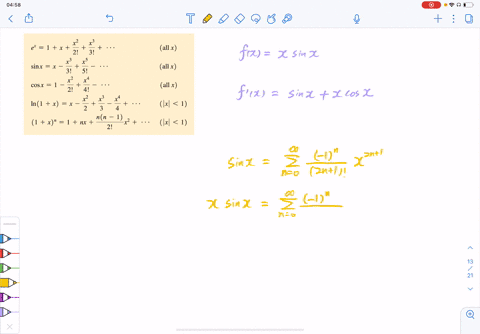 04:58
e^x = 1 + x + x^2/2! + x^3/3! + ··· (all x)
sin x = x − x^3/3! + x^5/5! − ··· (all x)
cos x = 1 − x^2/2! + x^4/4! − ··· (all x)
ln(1 + x) = x − x^2/2 + x^3/3 − x^4/4 + ··· (|x| < 1)
(1 + x)^n = 1 + nx + n(n − 1)/2! x^2 + ··· (|x| < 1)
f(x) = x sin x
f'(x) = sin x + x cos x
sin x = ∑_{n=0}^{∞} (-1)^n/(2n+1)! x^{2n+1}
x sin x = ∑_{n=0}^{∞} (-1)^n
13
/
21